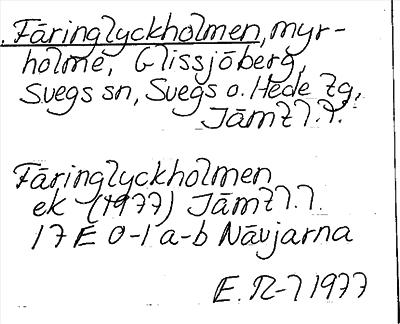 Färinglyckholmen, myr-
holme, Glissjöberg,
Svegs sn, Svegs o. Hede tg,
Jämtl.l.
Färinglyckholmen
ek (1977) Jämtl.l.
17 E 0-1 a-b Nävjarna
E. N-l 1977